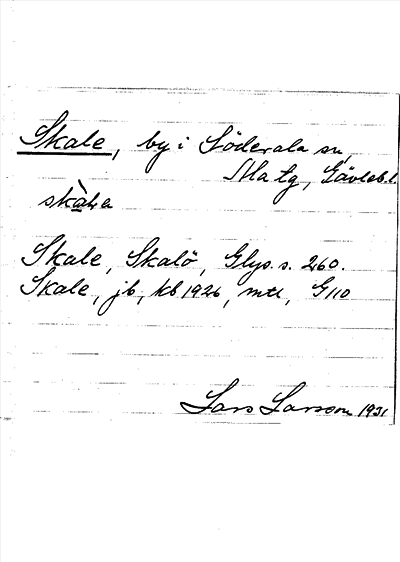 Skale, by i Söderala sn,
Ala tg, Gävleb. l.
skàla
Skale, Skalö, Glys. s. 260.
Skale, jb, kb 1926, mtl, G110
Lars Larsson 1931